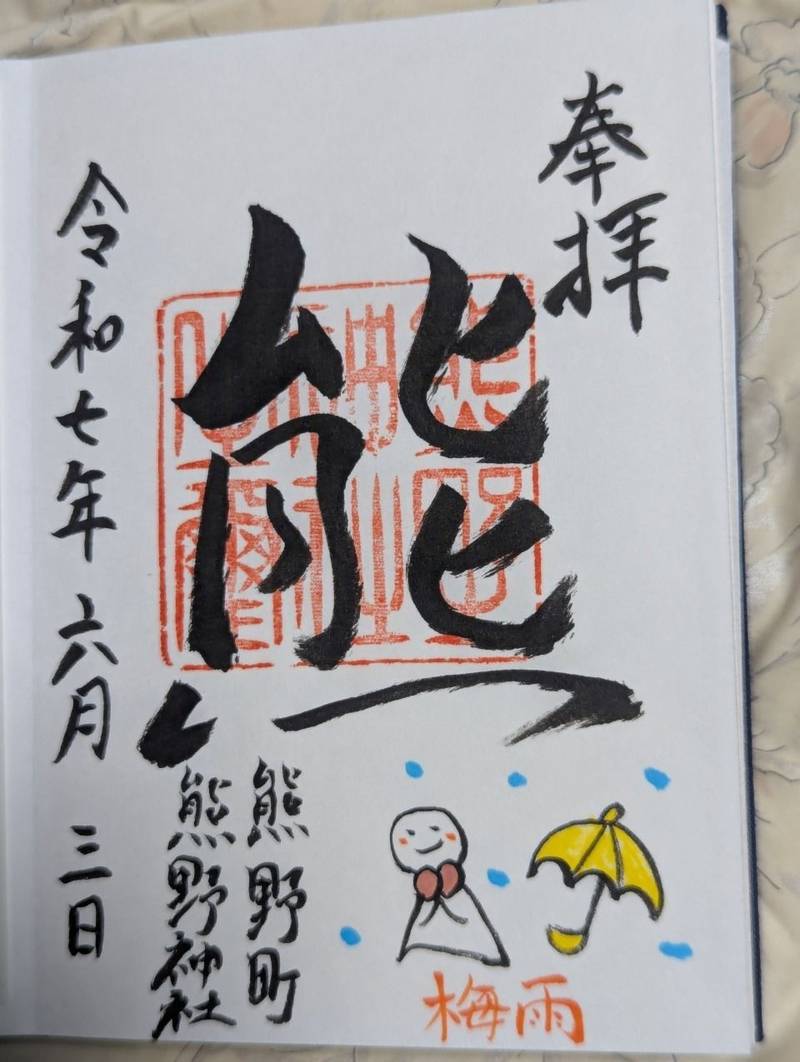 奉拝
熊
熊野町
熊野神社
令和七年六月三日
梅雨